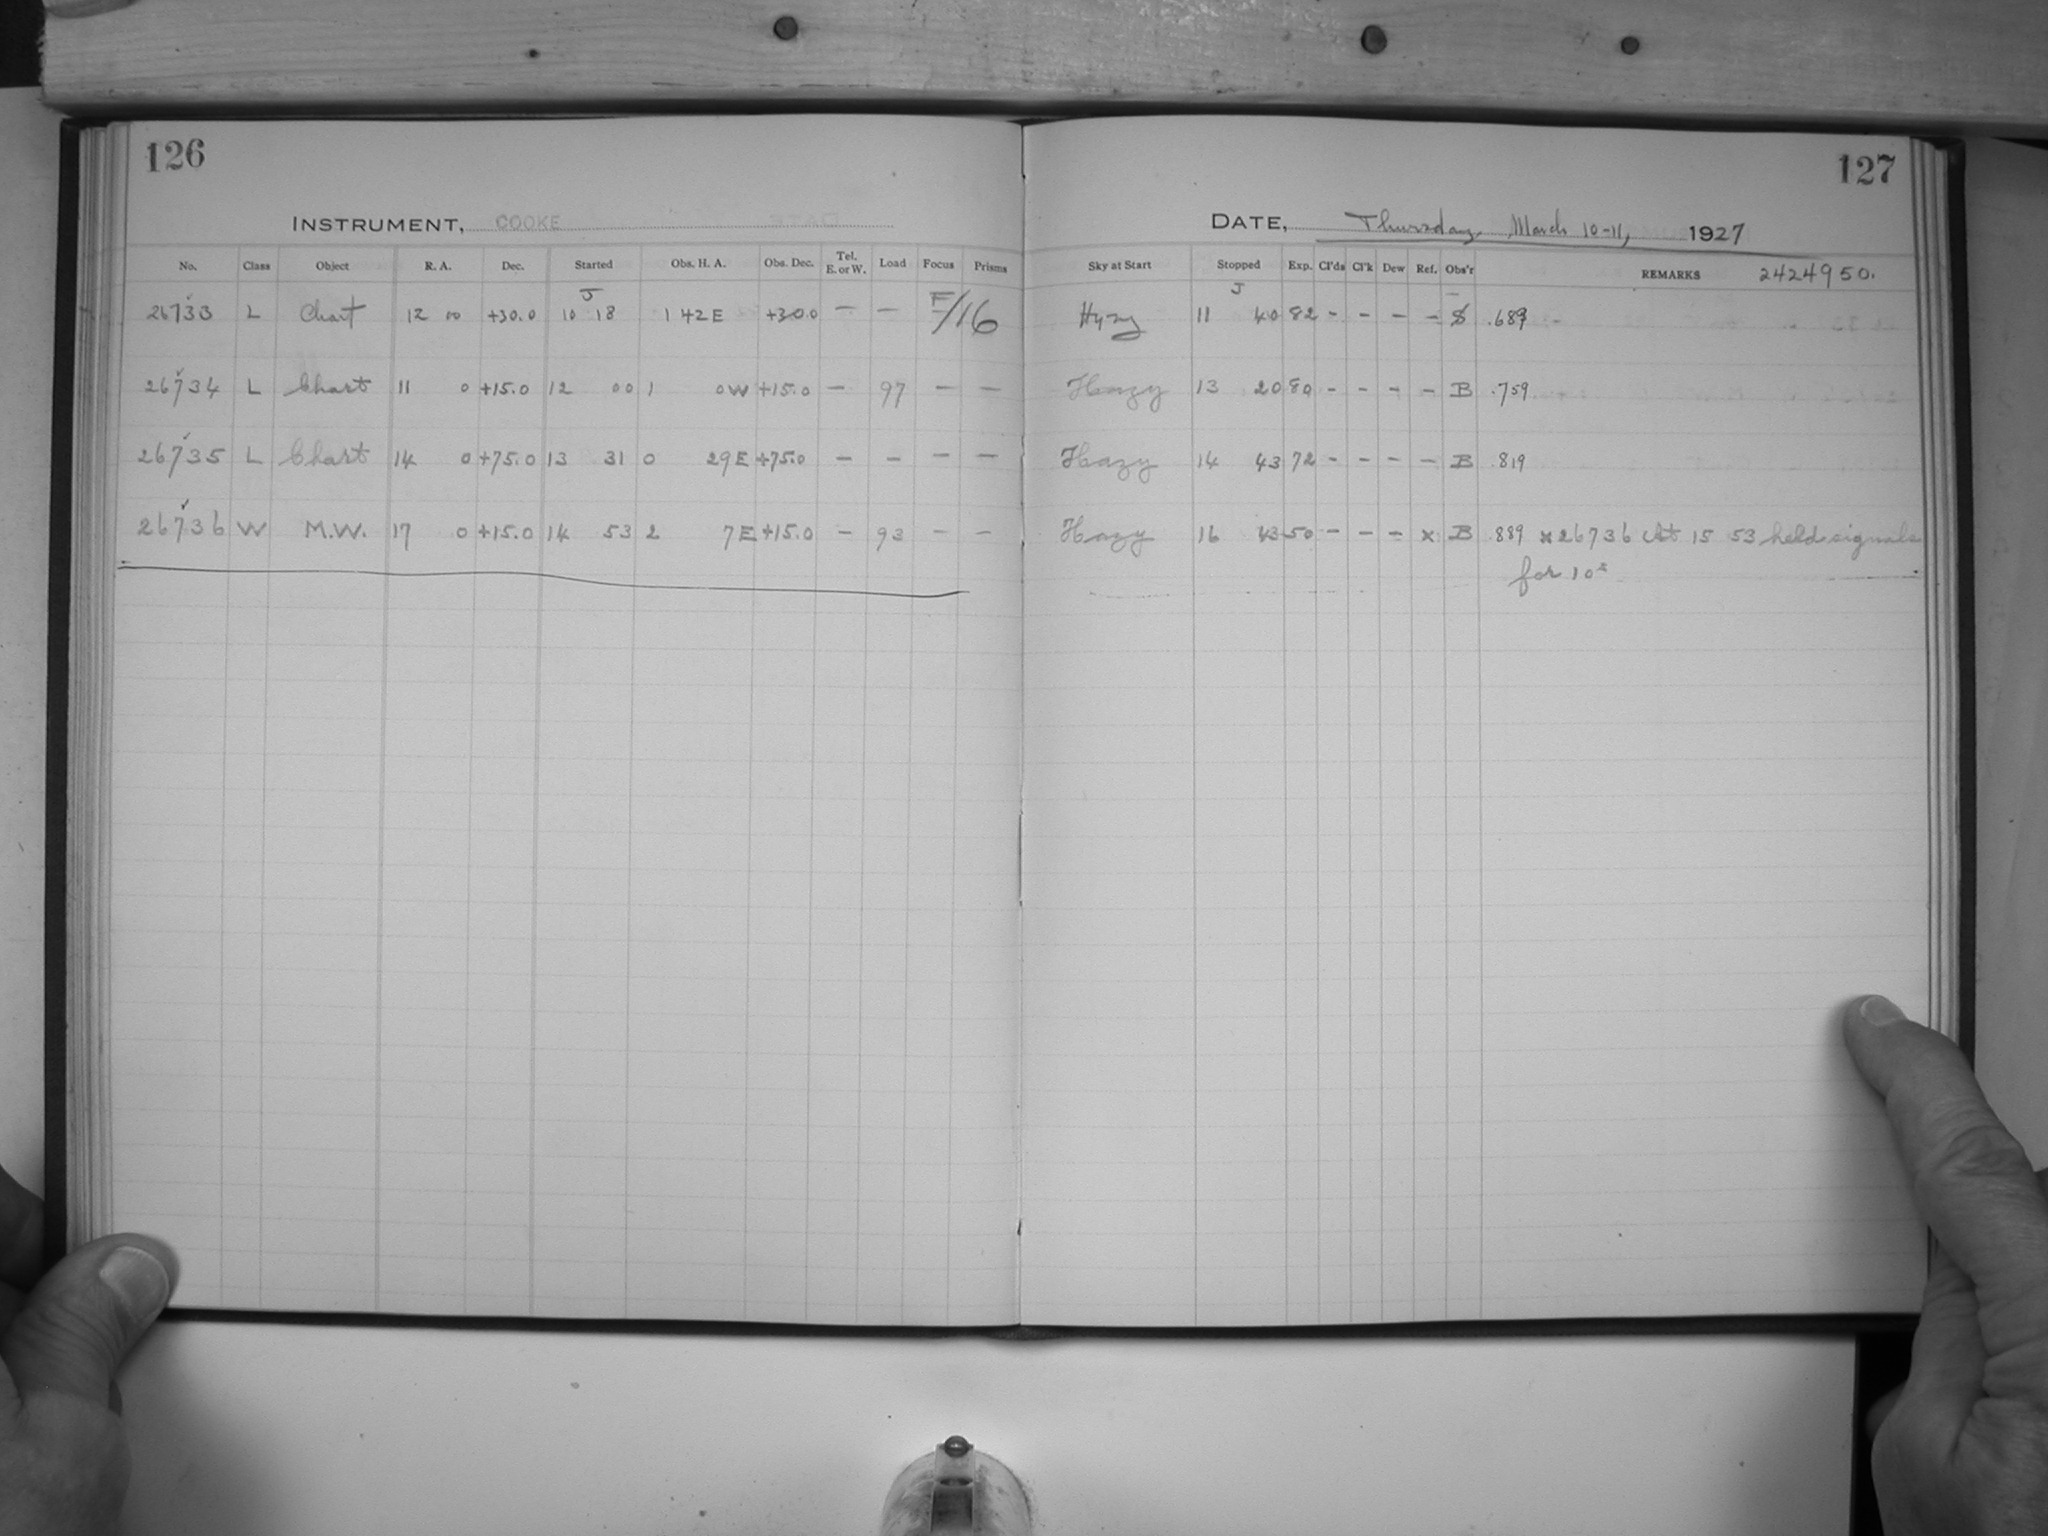 126
INSTRUMENT, COOKE
No. Class Object R. A. Dec. Started Obs. H. A. Obs. Dec. Tel. E. or W. Load Focus Prisms
J
26733 L Chart 12 00 +30.0 10 18 1 42 E +30.0 — — F/16
26734 L Chart 11 0 +15.0 12 00 1 0 W +15.0 — 97 — —
26735 L Chart 14 0 +75.0 13 31 0 29 E +75.0 — — — —
26736 W M.W. 17 0 +15.0 14 53 2 7 E +15.0 — 93 — —
127
DATE, Thursday March 10-11, 1927
Sky at Start Stopped Exp. Cl'ds Cl'k Dew Ref. Obs'r REMARKS 2424950.
J
Hazy 11 40 82 - - - - S .689
Hazy 13 20 80 - - - - B .759
Hazy 14 43 72 - - - - B .819
Hazy 16 43 50 - - - x B .889 x 26736 At 15 53 held signals
for 10s